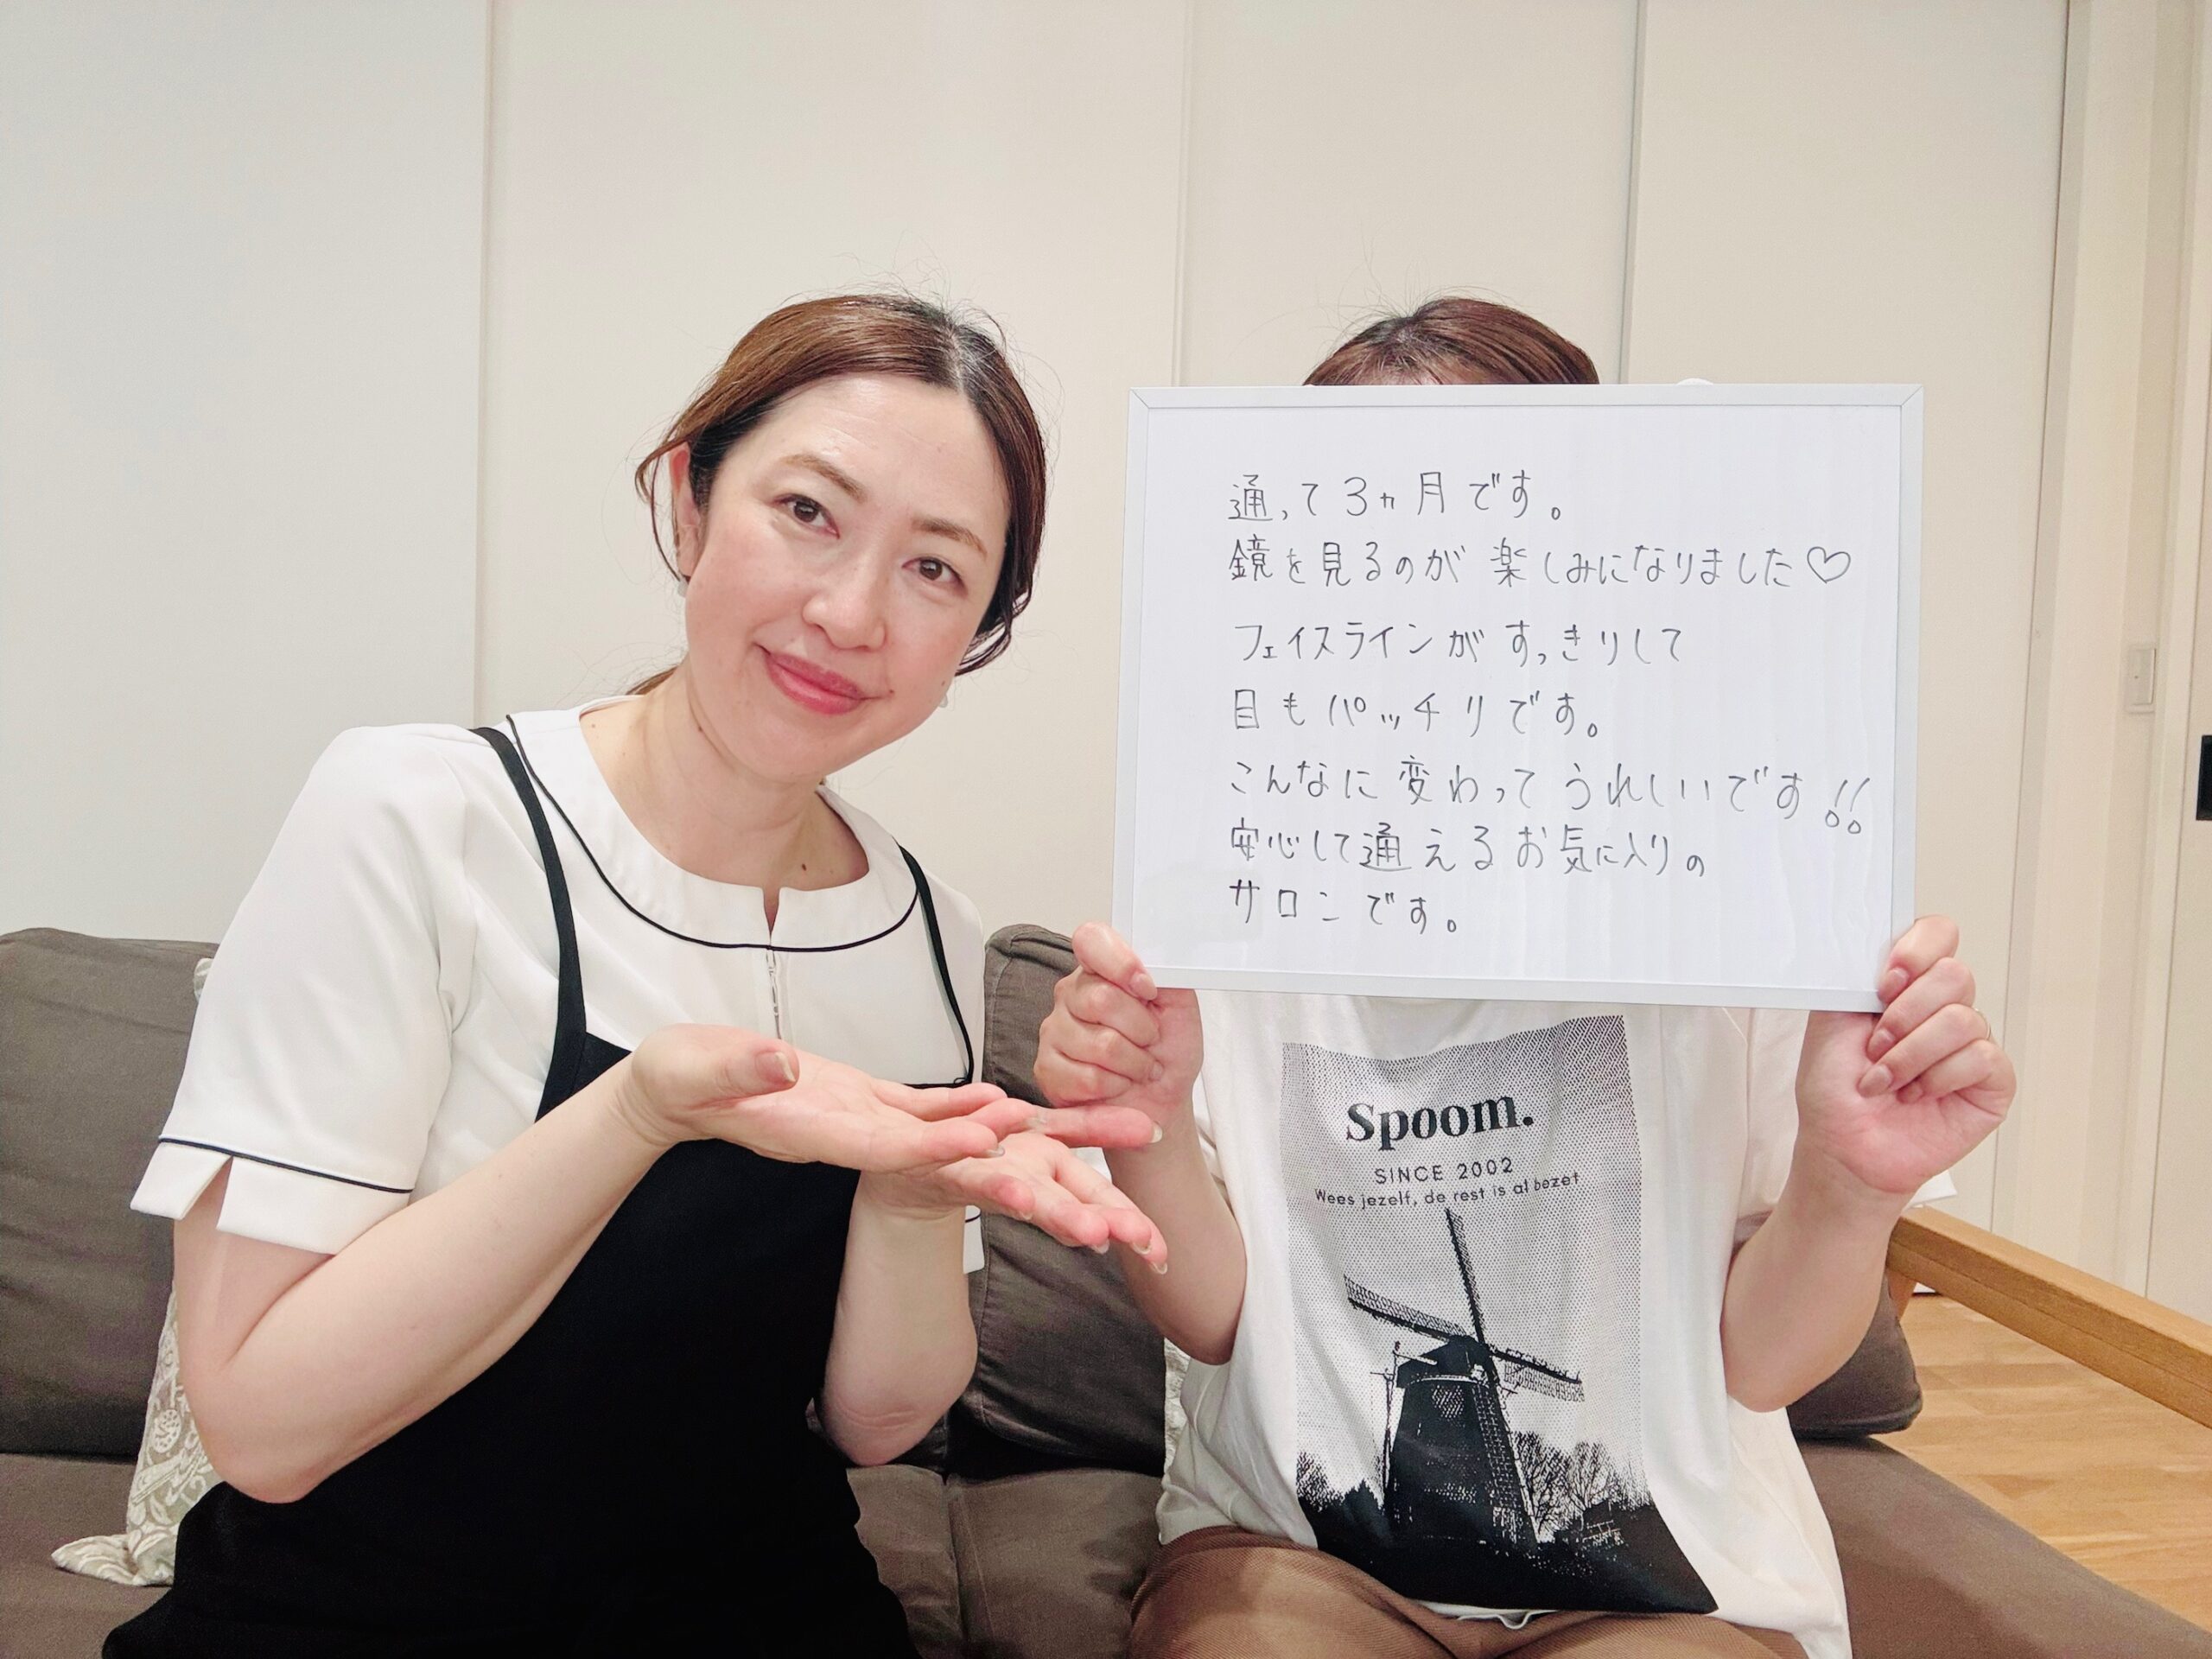 通って3ヵ月です。
鏡を見るのが楽しみになりました♡
フェイスラインがすっきりして
目もパッチリです。
こんなに変わってうれしいです!!
安心して通えるお気に入りの
サロンです。
Spoom.
SINCE 2002
Wees jezelf, de rest is al bezet